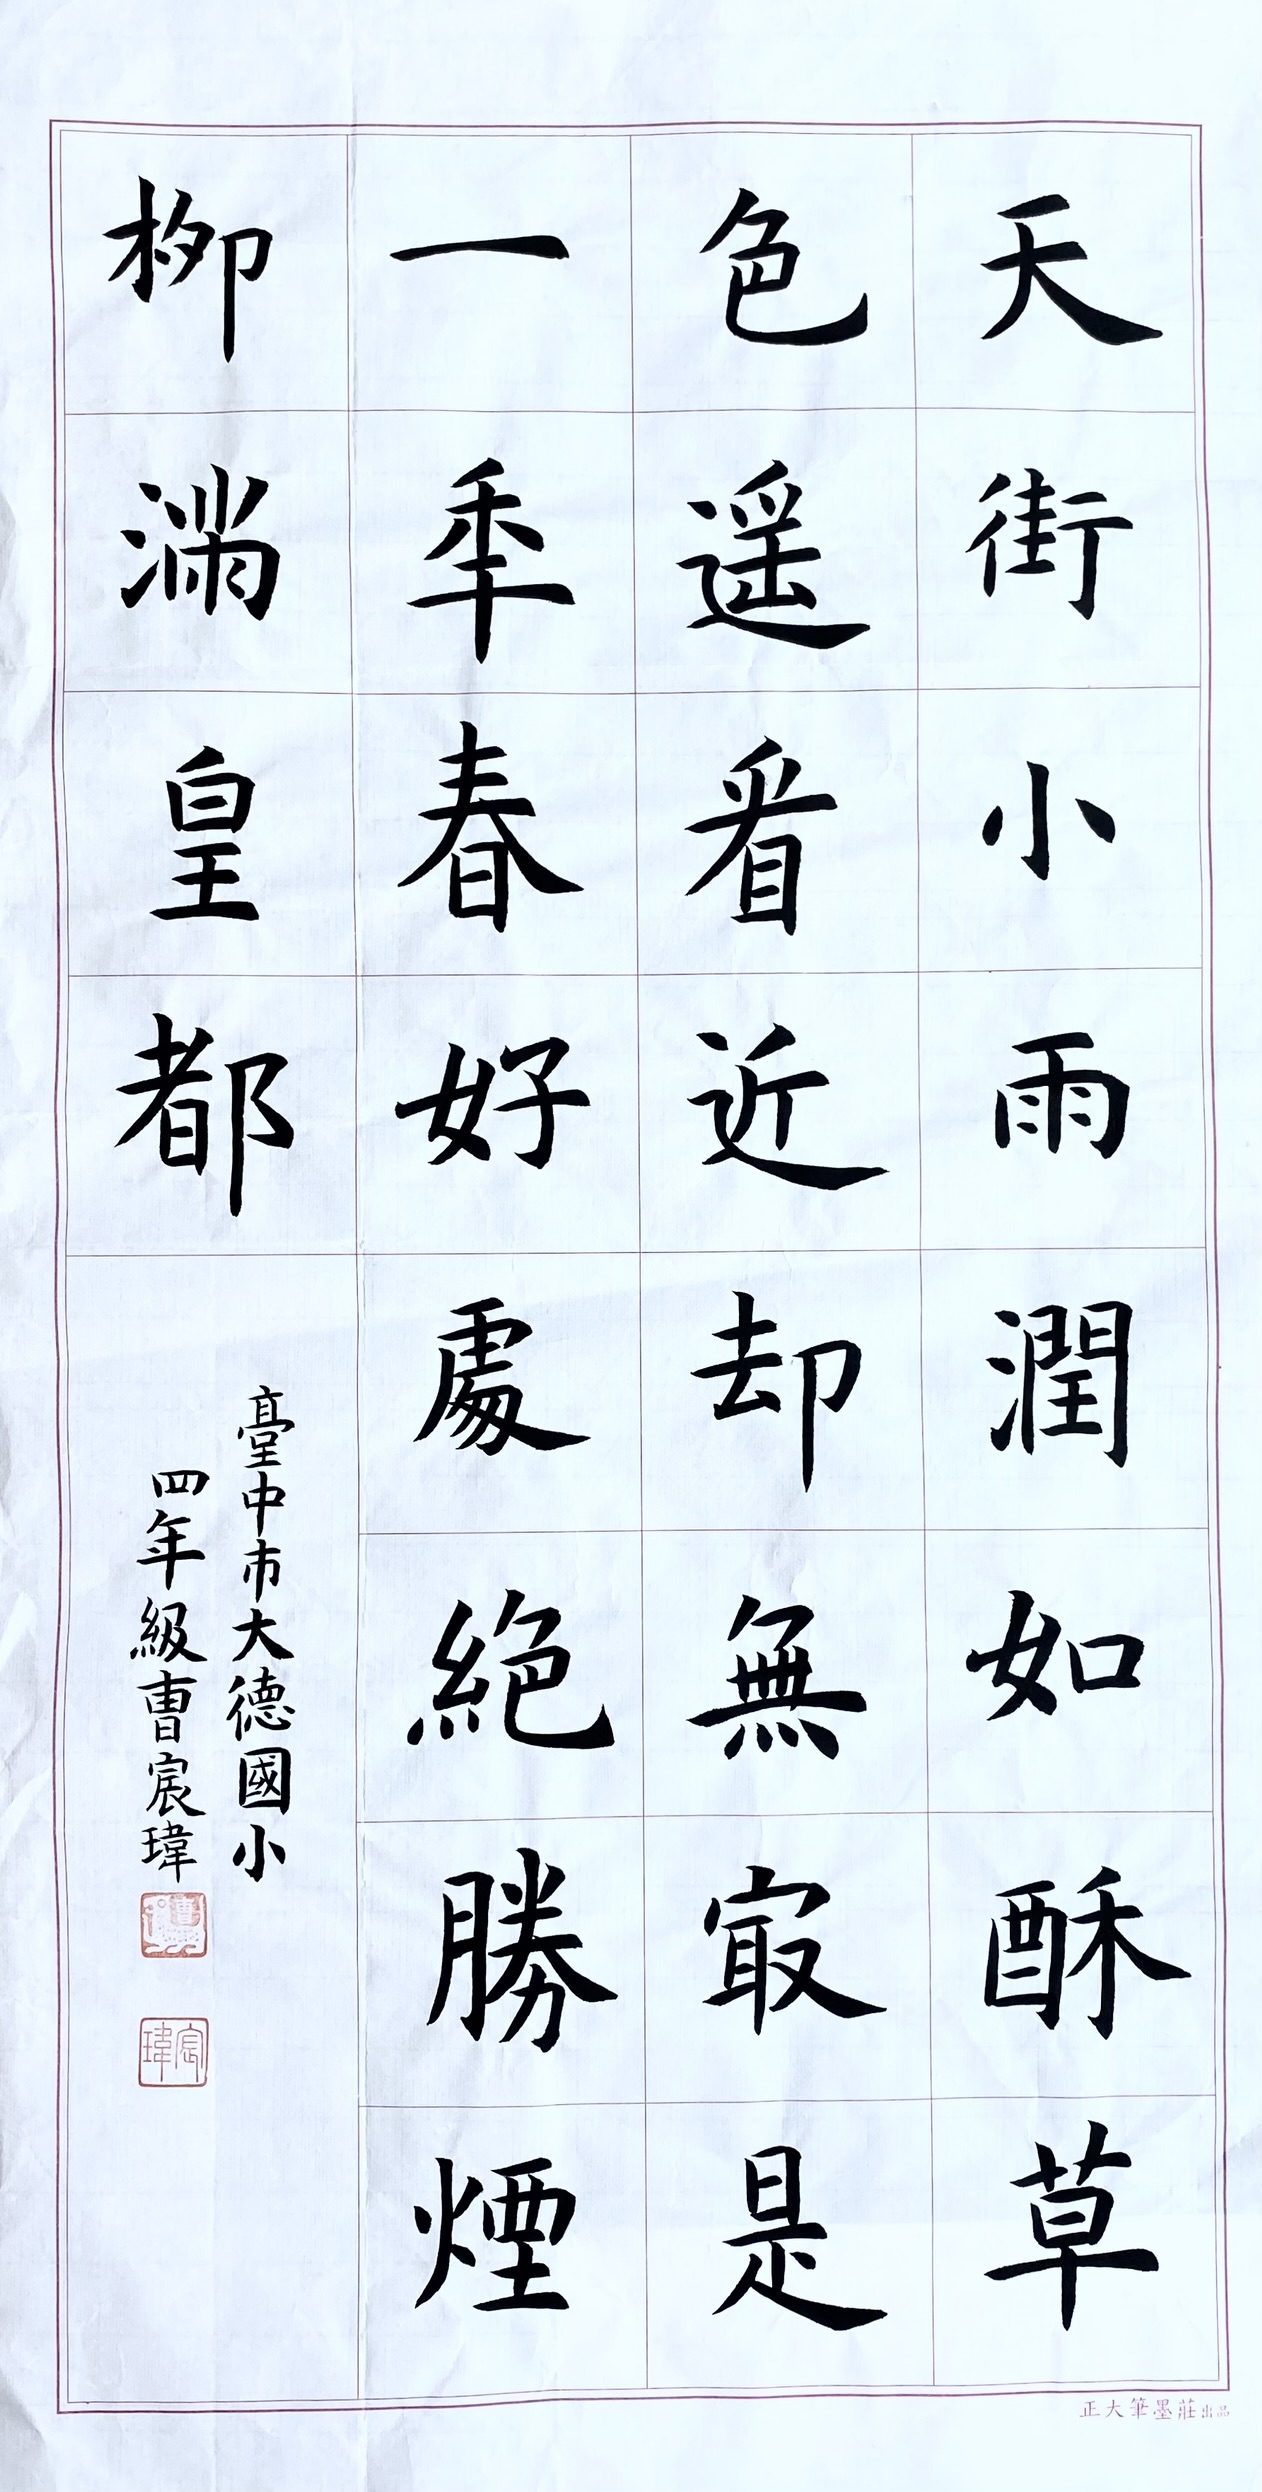 天街小雨潤如酥草
色遥看近却無冣是
一秊春好處絕勝煙
柳滿皇都
臺中市大德國小
四年級曹宸瑋
宸瑋
正大筆墨莊出品